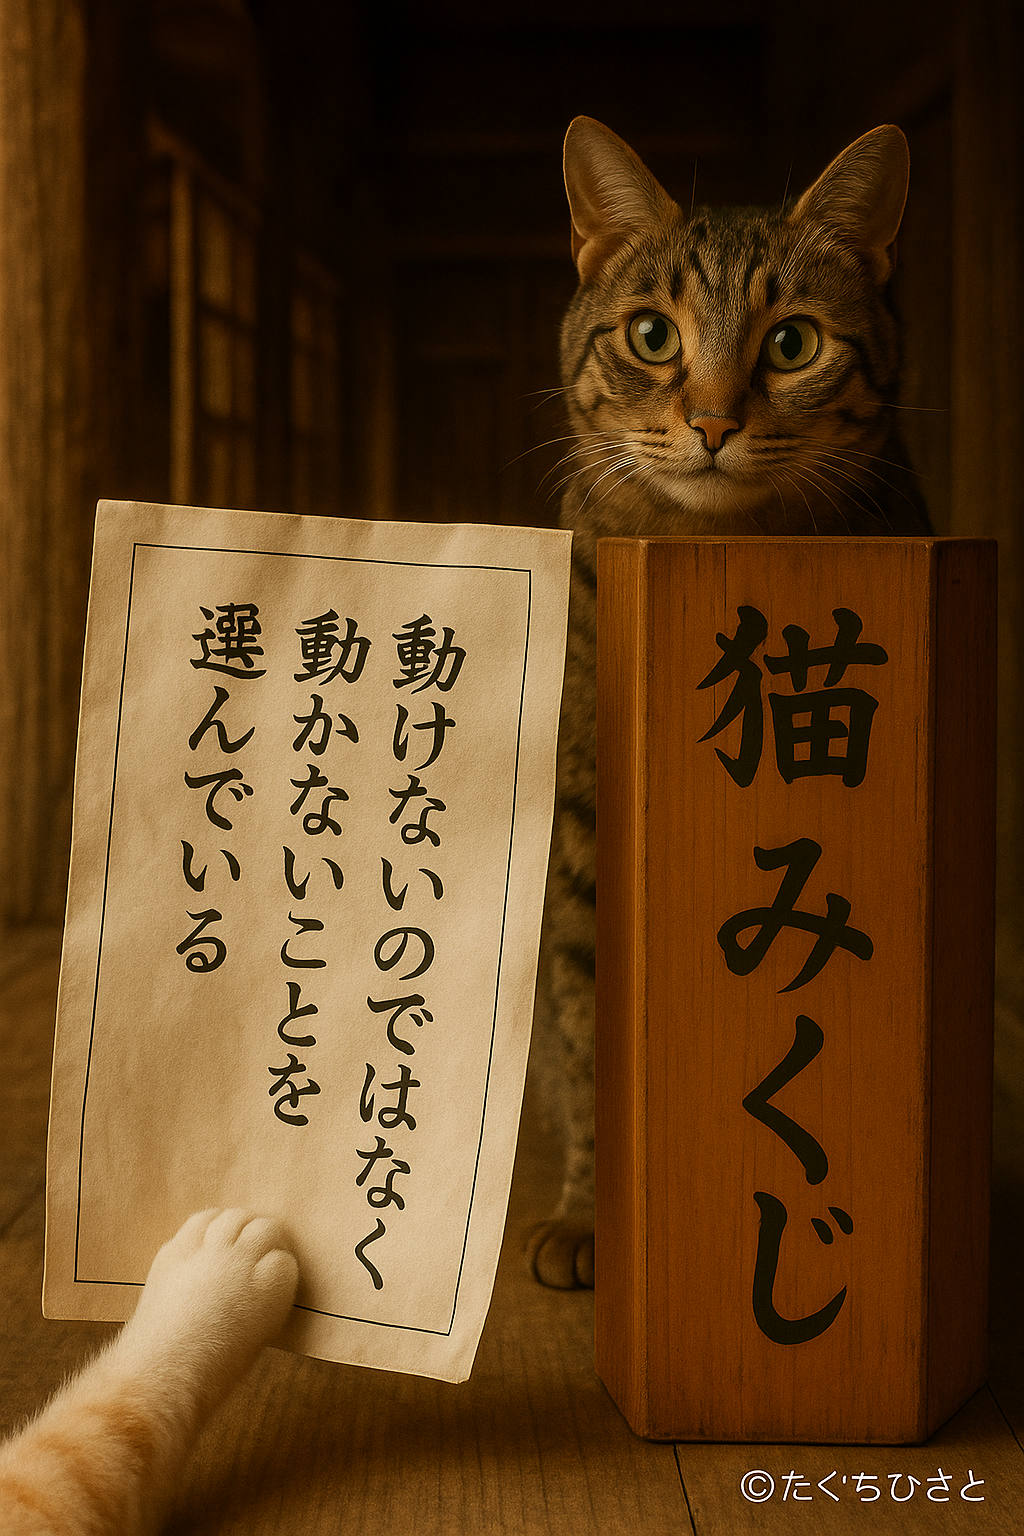 動けないのではなく
動かないことを
選んでいる
猫みくじ
©たぐちひさと